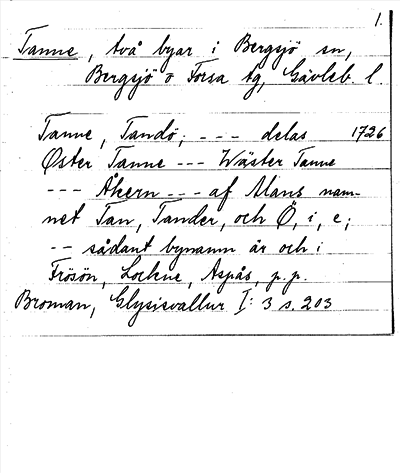 1.
Tanne, två byar i Bergsjö sn,
Bergsjö o Forsa tg, Gävleb. l.
Tanne, Tandö; --- delas 1726
Öster Tanne --- Wäster Tanne
--- Åkern --- af Mans nam-
net Tan, Tander, och Ö, i, e;
-- sådant bynamn är och i
Frösön, Lockne, Aspås, p.p.
Broman, Glysisvallur I: 3 s. 203